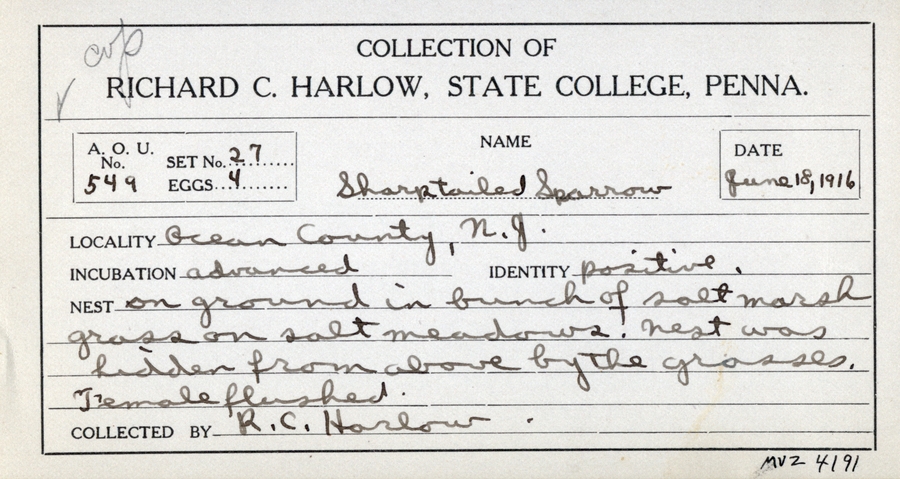 COLLECTION OF
RICHARD C. HARLOW, STATE COLLEGE, PENNA.
A. O. U. No. 549
SET No. 27
EGGS 4
NAME
Sharptailed Sparrow
DATE
June 18, 1916
LOCALITY Ocean County, N.J.
INCUBATION advanced IDENTITY positive.
NEST on ground in bunch of salt marsh
grass on salt meadows. Nest was
hidden from above by the grasses.
Female flushed.
COLLECTED BY R.C. Harlow
MVZ 4191